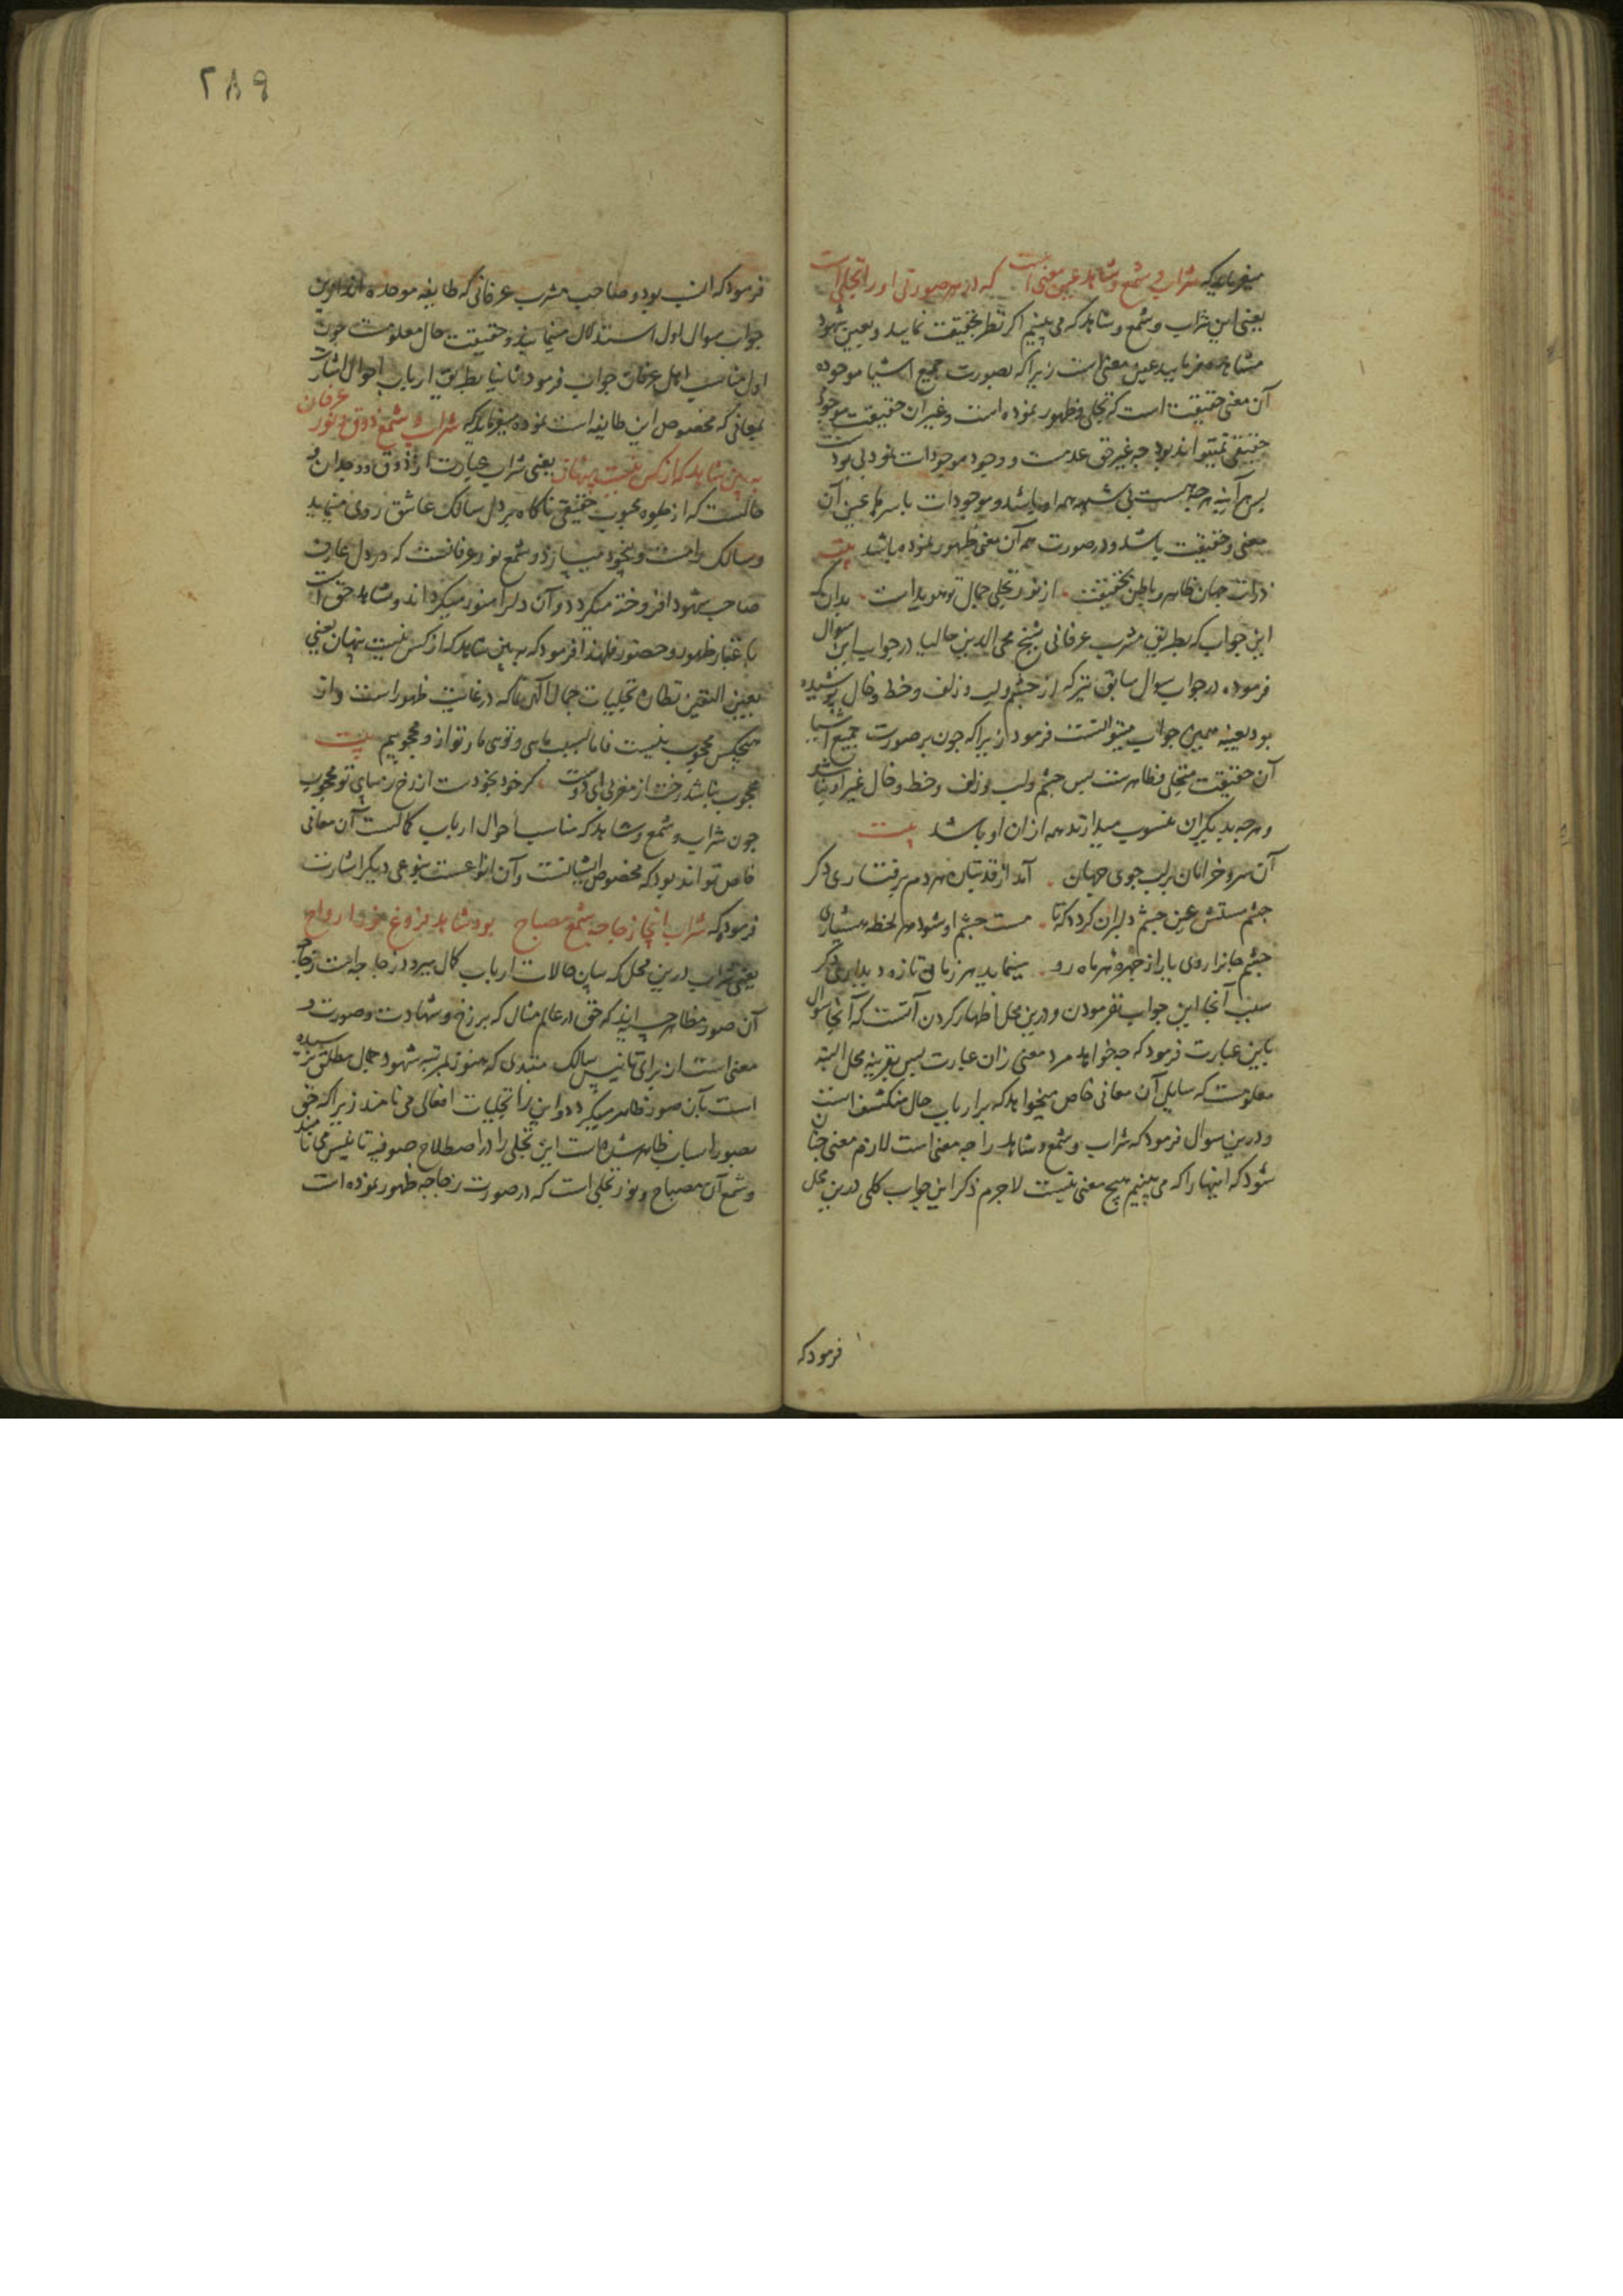 میفرماید که شراب و شمع و شاهد عین معنی است که در هر صورتی او را تجلی است
یعنی این شراب و شمع و شاهد که می بینیم اکر نظر بحقیقت نمایید و بعین شهود
مشاهده فرمایید عین معنی است زیرا که بصورت جمیع اشیا موجوده
آن معنی حقیقت است که تجلی و ظهور نموده است و غیر ان حقیقت موجود
حقیقی نمیتواند بود چه غیر حق عدمست و وجود موجودات نمود بی بود است
بس هر آینه هرجه هست بی شبهه همه او باشد و موجودات باسرها عین آن
معنی و حقیقت باشد و در صورت همه آن معنی ظهور نموده باشد بیت
ذرات جهان ظاهر و باطن بحقیقت از نور تجلی جمال تو هویداست بدان که
این جواب که بطریق مشرب عرفانی شیخ محی الدین حالیا در جواب این سوال
فرموده در جواب سوال سابق نیز که از چشم و لب و زلف و خط و خال پرسیده
بود بعینه همین جواب میتوانست فرمود از یراکه جون بر صورت جمیع اشیا
آن حقیقت متجلی و ظاهرست بس جشم و لب و زلف و خط و خال غیر او نباشد
و هرجه بدیکران منسوب میدارند همه ازان او باشد بیت
آن سرو خرامان بر لب جوی جهان آمد از قد بتان هر دم برفتاری دکر
جشم مستش عین جشم دلبران کرد که تا مست جشم او شود هر لحظه هشیاری
جشم جانرا روی یار از جهره هر ماه رو مینماید هر زمان تازه دیداری دکر
سبب آنجا این جواب نفرمودن و درین محل اظهار کردن آنست که آنجا سوال
باین عبارت فرمود که جه خواهد مرد معنی زان عبارت بس بقرینه محل البته
معلومست که سایل آن معانی خاص میخواهد که بر ارباب حال منکشف است
و درین سوال فرمود که شراب و شمع و شاهد را جه معنی است لازم معنی جنان
شود که اینها را که می بینیم هیچ معنی نیست لاجرم ذکر این جواب کلی درین محل
فرمود که
٢٨٩
فرمود که انسب بود و صاحب مشرب عرفانی که طایفه موحده اند ازین
جواب سوال اول استدلال مینمایند و حقیقت حال معلومست جون
اول مناسب اهل عرفان جواب فرمود ثانیا بطریق ارباب احوال اشارت
بمعانی که مخصوص این طایفه است نموده میفرماید که شراب و شمع ذوق و نور عرفان
ببین شاهد که از کس نیست پنهان یعنی شراب عبارت از ذوق و وجدان و
حالست که از جلوه محبوب حقیقی ناکاه بر دل سالک عاشق روی مینماید
و سالک را مست و بیخود میسازد و شمع نور عرفانست که در دل عارف
صاحب شهود افروخته میکردد و آن دلرا منور میکرداند و شاهد حق است
باعتبار ظهور و حضور فلهذا فرمود که ببین شاهد که از کس نیست پنهان یعنی
بعین الیقین نظاره تجلیات جمال الهی نما که در غایت ظهور است و از
هیچکس محجوب نیست فاما بسبب مایی و تویی ما و تو از و محجوبیم بیت
محجوب نباشد رخت از مغربی ای دوست کر خود بخودست از رخ زیبای تو محجوب
جون شراب و شمع و شاهد که مناسب احوال ارباب کمالست آن معانی
خاص تواند بود که مخصوص ایشانست و آن انواعست بنوعی دیکر اشارت
فرمود که شراب اینجا زجاجه شمع مصباح بود شاهد فروغ نور ارواح
یعنی شراب درین محل که بیان حالات ارباب کمال میرود زجاجه است و زجاجه
آن صور مظاهر حسیه اند که حق در عالم مثال که برزخ شهادت و صورت و
معنی است از برای تانیس سالک مبتدی که هنوز بمرتبه شهود جمال مطلق نرسیده
است بآن صور ظاهر میکردد و این را تجلیات افعالی می نامند زیرا که حق
بصور اسباب ظاهر شده است این تجلی را در اصطلاح صوفیه تانیس می نامند
و شمع آن مصباح و نور تجلی است که در صورت زجاجه ظهور نموده است